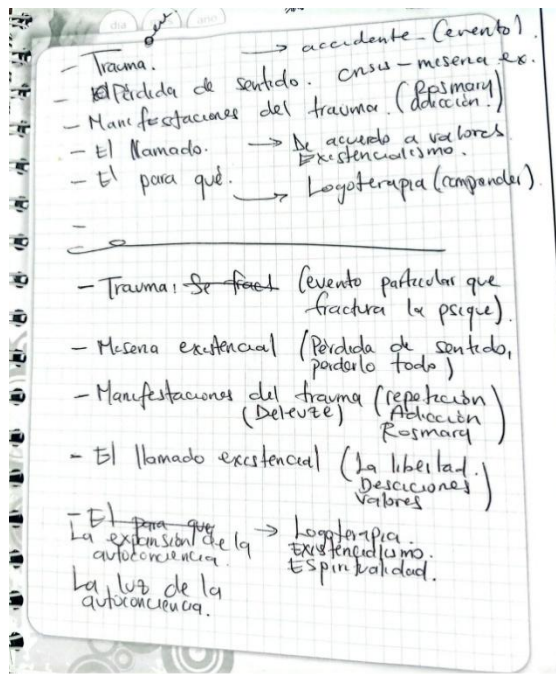 dia mes ano
- Trauma. → accidente - (evento).
- Pérdida de sentido. crisis - miseria ex.
- Manifestaciones del trauma. (Rosmary adicción.)
- El llamado. → De acuerdo a valores.
Existencialismo.
- El para qué. → Logoterapia (comprender).
-
- Trauma: Se fract (evento particular que
fractura la psique).
- Miseria existencial (Pérdida de sentido,
perderlo todo)
- Manifestaciones del trauma (repetición
(Deleuze) Adicción
Rosmary)
- El llamado existencial (La libertad.
Desciciones
Valores)
- El para que
La expansión de la → Logoterapia.
autoconciencia. Existencialismo.
Espiritualidad.
La luz de la
autoconciencia.